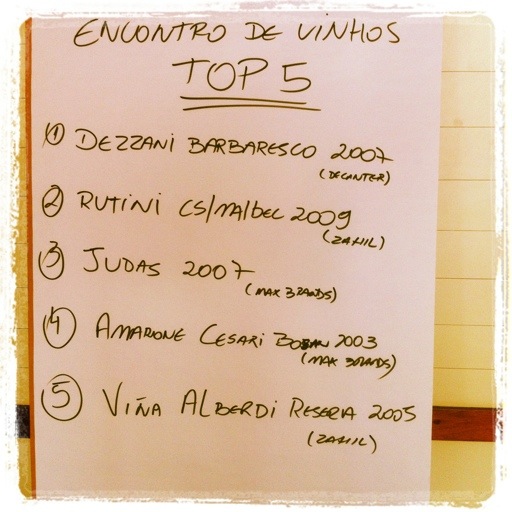 ENCONTRO DE VINHOS
TOP 5
1 DEZZANI BARBARESCO 2007
(DECANTER)
2 RUTINI CS/MALBEC 2009
(ZAHIL)
3 JUDAS 2007
(MAX BRANDS)
4 AMARONE CESARI BOSAN 2003
(MAX BRANDS)
5 VIÑA ALBERDI RESERVA 2005
(ZAHIL)